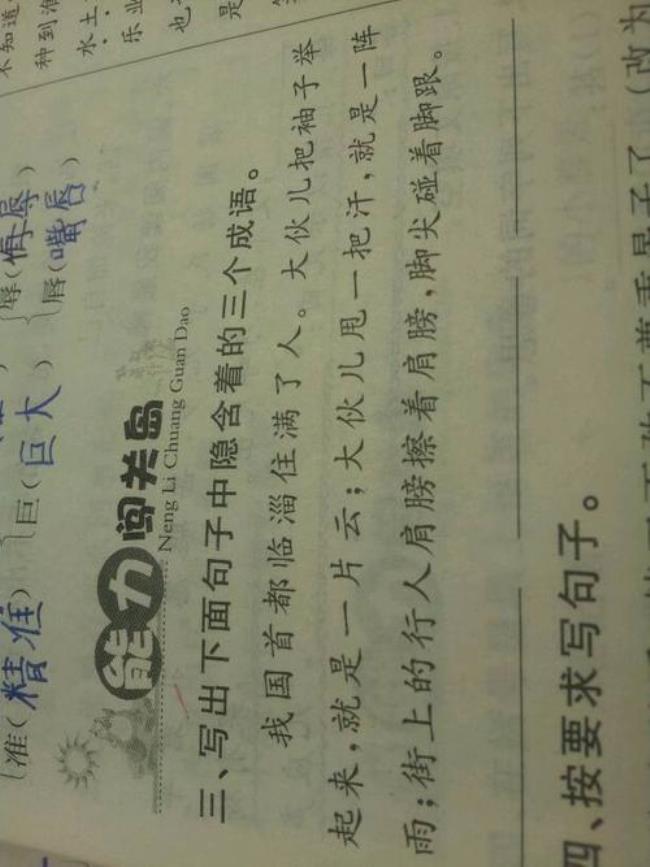 不知道
种到淮
水土
乐业
也
是
准(精准)
巨(巨大)
辱(侮辱)
唇(嘴唇)
能力闯关岛
Neng Li Chuang Guan Dao
三、写出下面句子中隐含着的三个成语。
我国首都临淄住满了人。大伙儿把袖子举
起来,就是一片云;大伙儿甩一把汗,就是一阵
雨;街上的行人肩膀擦着肩膀,脚尖碰着脚跟。
四、按要求写句子。
(改为